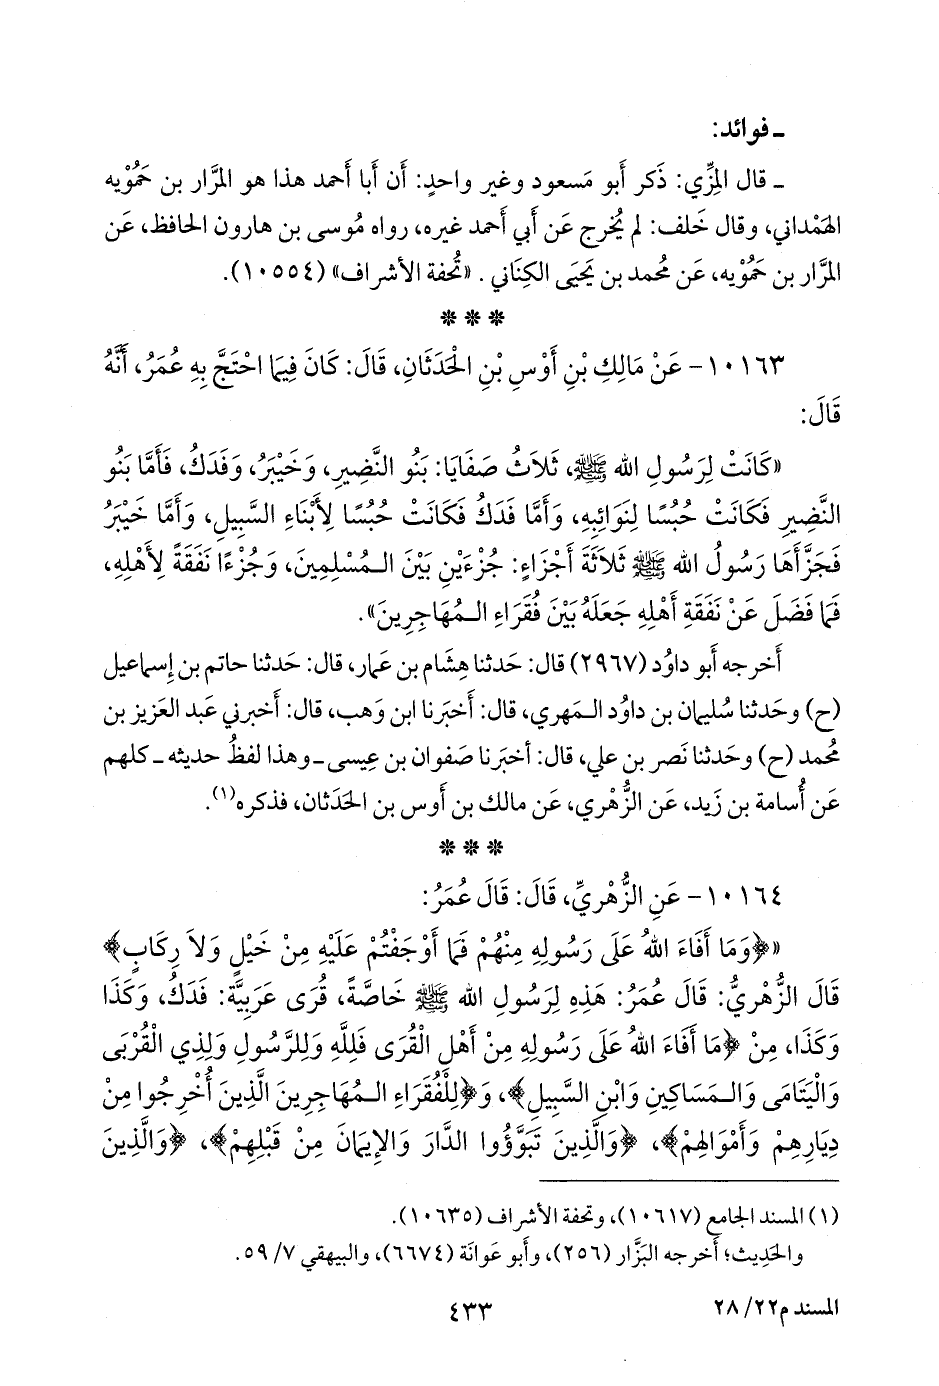 ـ فوائد:
ـ قال المِزِّي: ذَكر أَبو مَسعود وغير واحدٍ: أَن أَبا أَحمد هذا هو المَرَّار بن حَمُّوْيه
الهَمْداني، وقال خَلف: لم يُخرج عَن أَبي أَحمد غيره، رواه مُوسى بن هارون الحافظ، عَن
المَرَّار بن حَمُّوْيه، عَن مُحمد بن يَحيَى الكِنَاني. «تُحفة الأَشراف» (١٠٥٥٤).
***
١٠١٦٣- عَنْ مَالِكِ بْنِ أَوْسِ بْنِ الْحَدَثَانِ، قَالَ: كَانَ فِيمَا احْتَجَّ بِهِ عُمَرُ، أَنَّهُ
قَالَ:
«كَانَتْ لِرَسُولِ الله ﷺ، ثَلاَثُ صَفَايَا: بَنُو النَّضِيرِ، وَخَيْبَرُ، وَفَدَكُ، فَأَمَّا بَنُو
النَّضِيرِ فَكَانَتْ حُبُسًا لِنَوَائِبِهِ، وَأَمَّا فَدَكُ فَكَانَتْ حُبُسًا لِأَبْنَاءِ السَّبِيلِ، وَأَمَّا خَيْبَرُ
فَجَزَّأَهَا رَسُولُ الله ﷺ ثَلاَثَةَ أَجْزَاءٍ: جُزْءَيْنِ بَيْنَ الـمُسْلِمِينَ، وَجُزْءًا نَفَقَةً لِأَهْلِهِ،
فَمَا فَضَلَ عَنْ نَفَقَةِ أَهْلِهِ جَعَلَهُ بَيْنَ فُقَرَاءِ الـمُهَاجِرِينَ».
أَخرجه أَبو داوُد (٢٩٦٧) قال: حَدثنا هِشام بن عمار، قال: حَدثنا حاتم بن إِسماعيل
(ح) وحَدثنا سُليمان بن داوُد الـمهري، قال: أَخبَرنا ابن وَهب، قال: أَخبرني عَبد العَزيز بن
مُحمد (ح) وحَدثنا نَصر بن علي، قال: أَخبَرنا صَفوان بن عِيسى ـ وهذا لفظُ حديثه ـ كلهم
عَن أُسامة بن زَيد، عَن الزُّهْري، عَن مالك بن أَوس بن الحَدَثان، فذكره(١).
***
١٠١٦٤- عَنِ الزُّهْرِيِّ، قَالَ: قَالَ عُمَرُ:
«﴿وَمَا أَفَاءَ اللهُ عَلَى رَسُولِهِ مِنْهُمْ فَمَا أَوْجَفْتُمْ عَلَيْهِ مِنْ خَيْلٍ وَلاَ رِكَابٍ﴾
قَالَ الزُّهْرِيُّ: قَالَ عُمَرُ: هَذِهِ لِرَسُولِ الله ﷺ خَاصَّةً، قُرَى عَرَبِيَّةَ: فَدَكُ، وَكَذَا
وَكَذَا، مِنْ ﴿مَا أَفَاءَ اللهُ عَلَى رَسُولِهِ مِنْ أَهْلِ الْقُرَى فَلِلَّهِ وَلِلرَّسُولِ وَلِذِي الْقُرْبَى
وَالْيَتَامَى وَالـمَسَاكِينِ وَابْنِ السَّبِيلِ﴾، وَ﴿لِلْفُقَرَاءِ الـمُهَاجِرِينَ الَّذِينَ أُخْرِجُوا مِنْ
دِيَارِهِمْ وَأَمْوَالِهِمْ﴾، ﴿وَالَّذِينَ تَبَوَّؤُوا الدَّارَ وَالإِيمَانَ مِنْ قَبْلِهِمْ﴾، ﴿وَالَّذِينَ
(١) المسند الجامع (١٠٦١٧)، وتحفة الأَشراف (١٠٦٣٥).
والحَدِيث؛ أَخرجه البَزَّار (٢٥٦)، وأَبو عَوانَة (٦٦٧٤)، والبيهقي ٧/ ٥٩.
المسند م٢٢/ ٢٨
٤٣٣